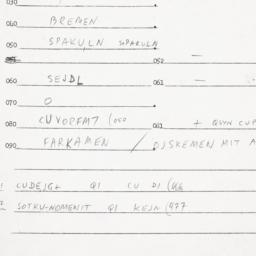 030
040 BREMEN
050 SPAKULN SPAKULN
052 —
060 SEJDL 061 —
070 O
080 CUVOPFMT (060 081 + QUYN CUP
090 FARKAMEN / DJSKEMEN MIT A
1 CUDEJG+ QI CU DI (
2 SOTKU-NOMENIT QI KEJN (477